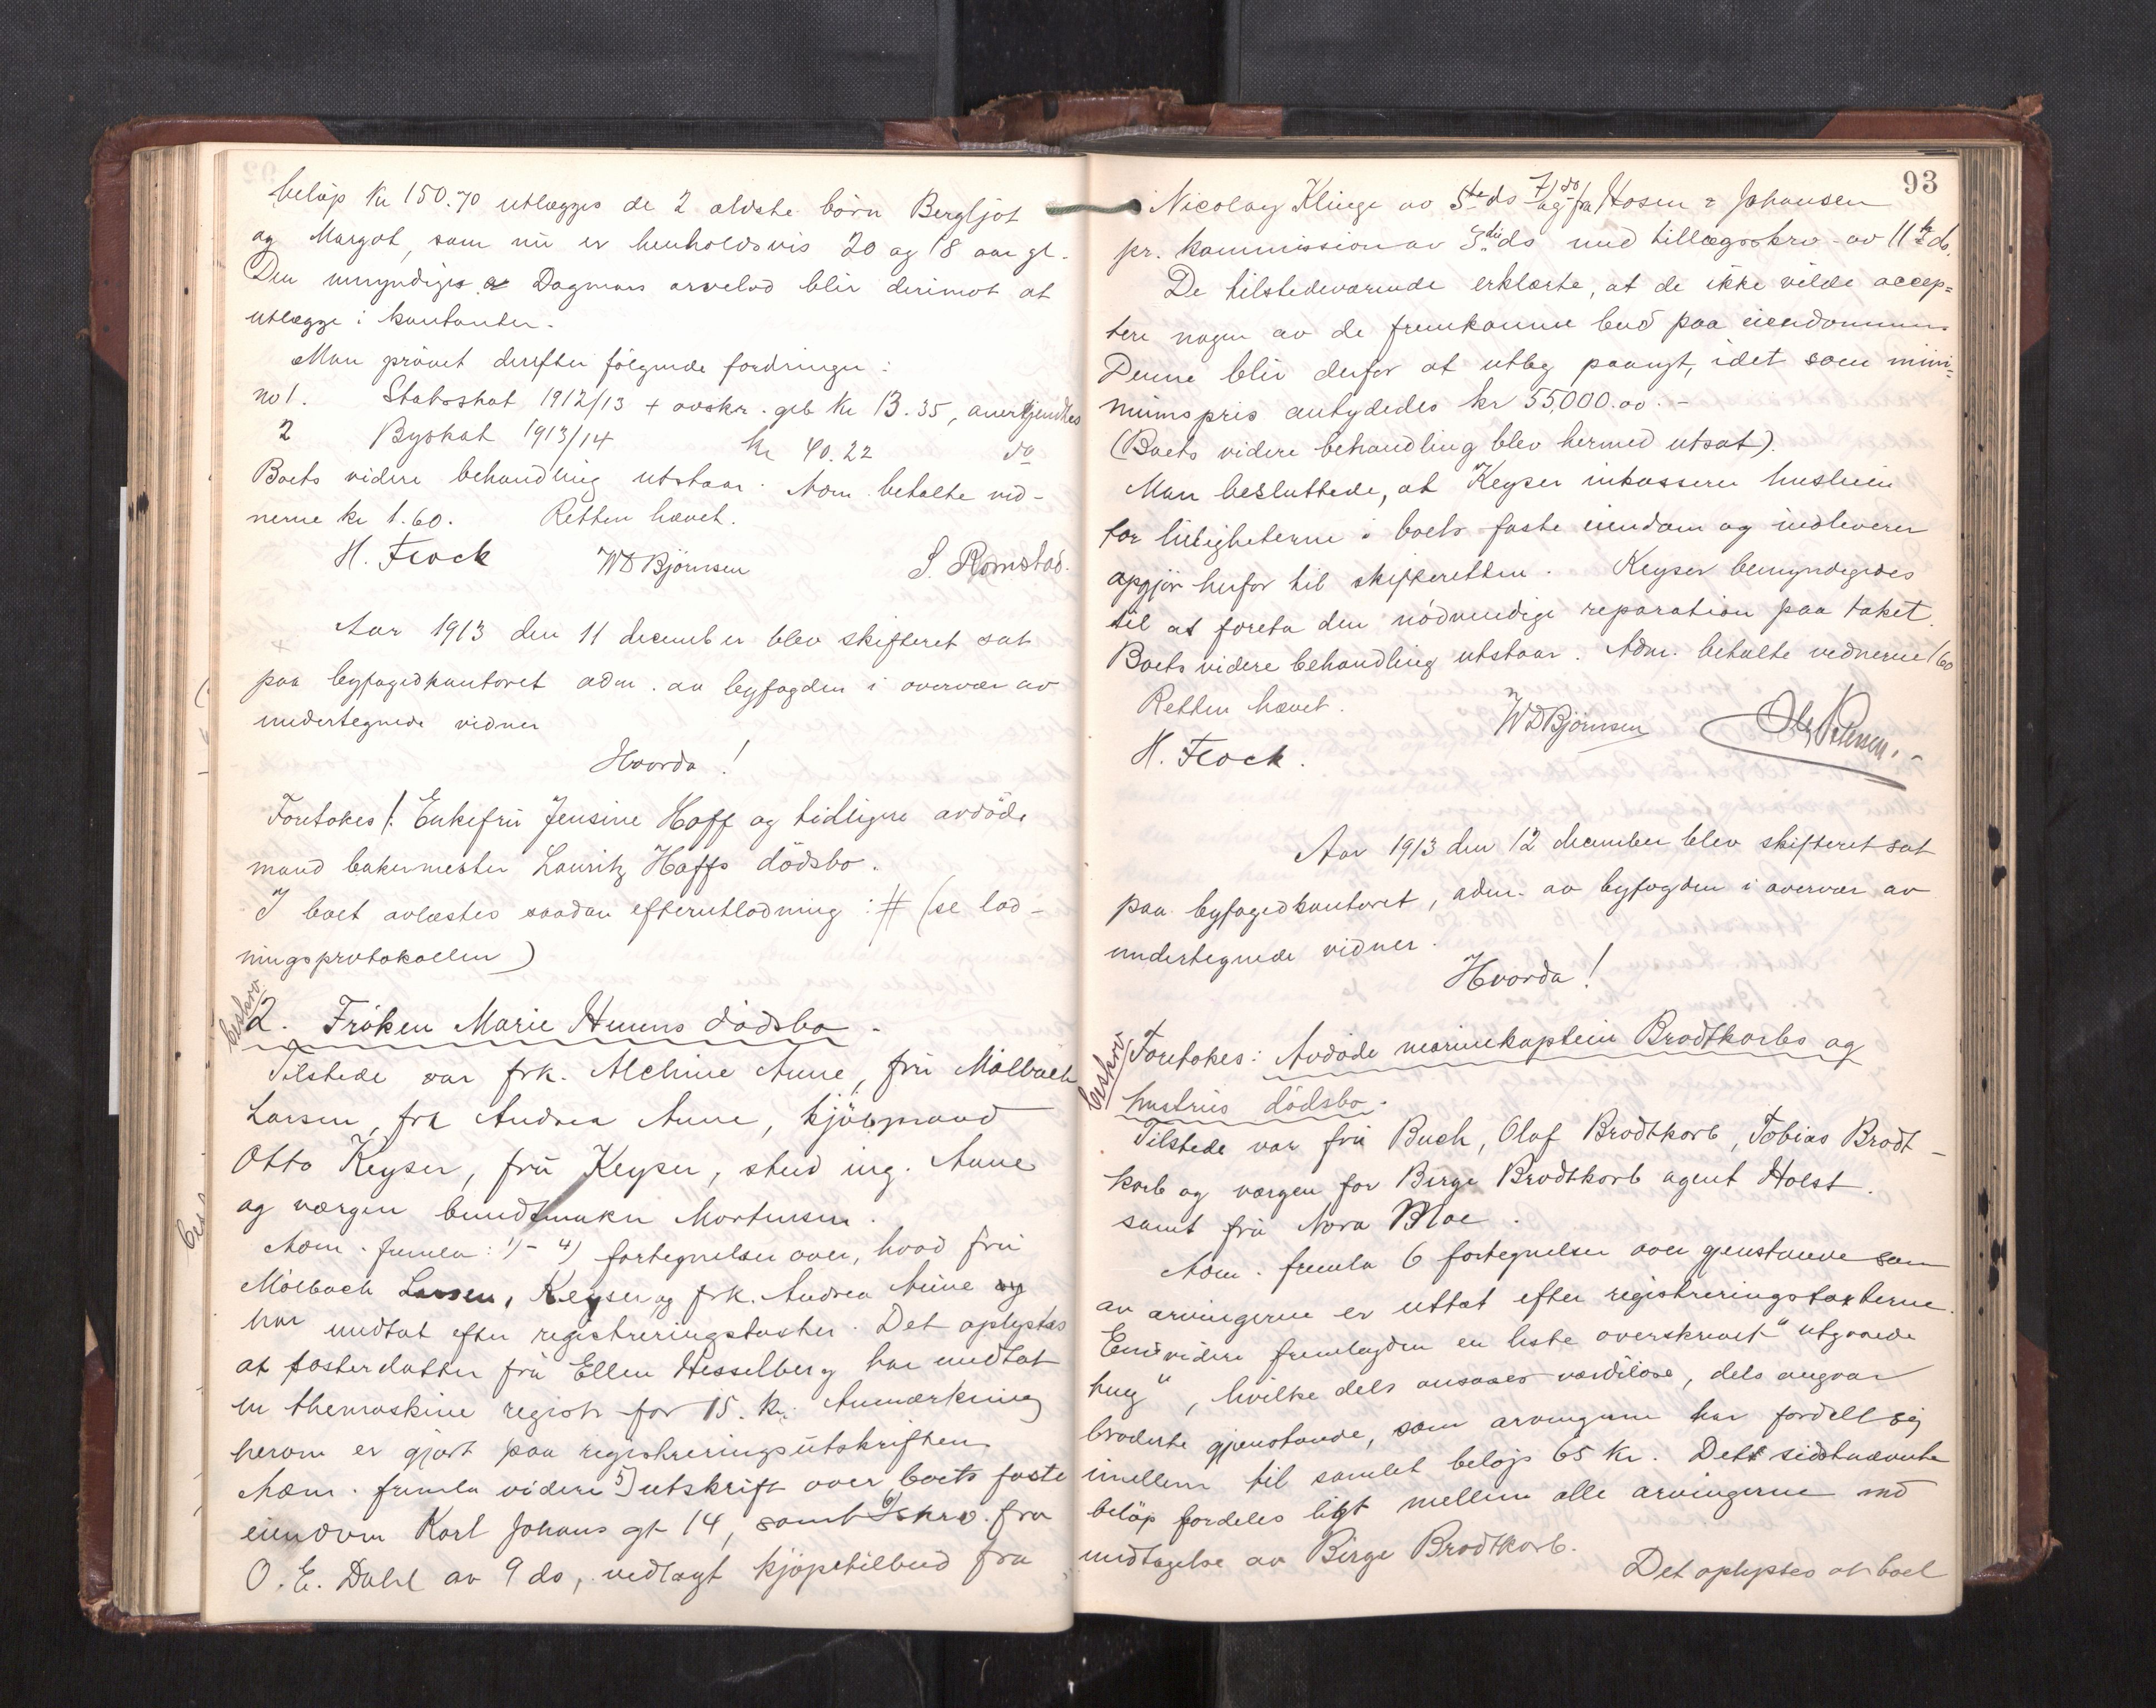 beløp kr 150.70 utlægges de 2 ældste børn Bergljot
og Margot, som nu er henholdsvis 20 og 18 aar gl.
Den umyndiges Dagmars arvelod blir derimot at
utlægge i kontanter.
Man prøvet derefter følgende fordringer:
no 1. Statsskat 1912/13 + avskr. geb kr 13.35, anerkjendtes
2 Byskat 1913/14 kr 40.22 do
Boets videre behandling utstaar. Adm. betalte vid-
nerne kr 1.60. Retten hævet.
H. Flock WD Bjørnsen S. Romstad.
Aar 1913 den 11 december blev skifteret sat
paa byfogedkontoret adm. av byfogden i overvær av
undertegnede vidner
Hvorda!
Foretokes 1. Enkefru Jensine Hoff og tidligere avdøde
mand bakermester Lauritz Hoffs dødsbo.
I boet avlæstes saadan efterutlodning: # (se lod-
ningsprotokollen)
beskrev.
2. Frøken Marie Aunes dødsbo.
Tilstede var frk. Alchine Aune, fru Mølbach
Larsen, frk Andrea Aune, kjøbmand
Otto Keyser, fru Keyser, stud ing. Aune
og værgen bundtmaker Mortensen.
Adm. fremla: 1) - 4) fortegnelser over, hvad fru
Mølbach Larsen, Keyser og frk. Andrea Aune
har mottat efter registreringstakster. Det oplystes
at fosterdatter fru Ellen Hesselberg har mottat
en themaskine registr for 15. kr. Anmærkning
herom er gjort paa registreringsutskriften
Adm. fremla videre 5) utskrift over boets faste
eiendom Karl Johans gt 14, samt 6) skrv. fra
O. E. Dahl av 9 ds, vedlagt kjøpetilbud fra
93
Nicolay Klinge av 5te ds og 7/ do fra Hosen & Johansen
pr. kommission av 3die ds med tillægsskrv. av 11te ds.
De tilstedeværende erklærte, at de ikke vilde accep=
tere nogen av de fremkomne bud paa eiendommen
Denne blir derfor at utby paanyt, idet som mini=
mumspris antydedes kr 55,000.00.-
(Boets videre behandling blev hermed utsat).
Man besluttede, at Keyser inkasserer husleien
for leiligheterne i boets faste eiendom og indleverer
opgjør herfor til skifteretten. Keyser bemyndigedes
til at foreta den nødvendige reparation paa taket.
Boets videre behandling utstaar. Adm. betalte vidnerne 1.60
Retten hævet.
H. Flock. WD Bjørnsen Ole Petersen.
Aar 1913 den 12 december blev skifteret sat
paa byfogedkontoret, adm. av byfogden i overvær av
undertegnede vidner.
Hvorda!
beskrev
Foretokes: Avdøde marinekaptein Brodtkorbs og
hustrus dødsbo.
Tilstede var fru Buch, Olaf Brodtkorb, Tobias Brodt-
korb og værgen for Birge Brodtkorb agent Holst.
samt fru Nora Moe.
Adm. fremla 6 fortegnelser over gjenstande som
av arvingerne er uttat efter registreringstaksterne.
Endvidere fremlagdes en liste overskrevet "utgaaede
ting", hvilke dels ansaaes værdiløse, dels angaar
broderte gjenstande, som arvingerne har fordelt sig
imellem til samlet beløp 65 kr. Det sidstnævnte
beløp fordeles likt mellem alle arvingerne med
undtagelse av Birge Brodtkorb.
Det oplystes at boet